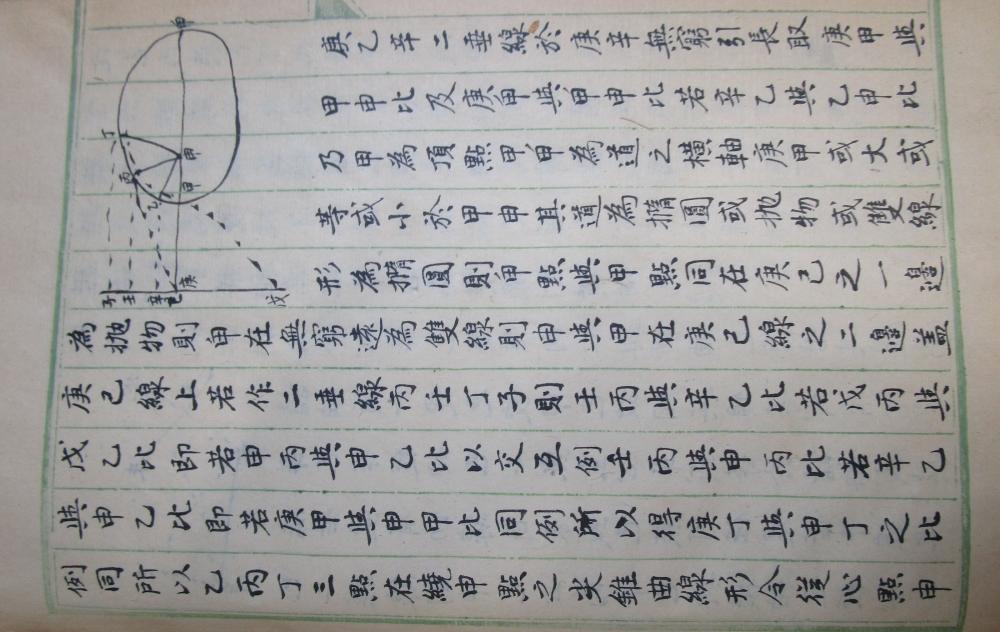 庚乙辛二垂線於庚辛無窮引長取庚甲與
甲申比及庚甲與甲申比若辛乙與乙申比
乃甲為頂點甲甲為道之橫軸庚甲或大或
等或小於甲申其道為撱圓或拋物或雙線
形為撱圓則甲點與甲點同在庚己之一邊
為拋物則甲在無窮遠為雙線則甲與甲在庚己線之二邊蓋
庚己線上若作二垂線丙壬丁子則壬丙與辛乙比若戊丙與
戊乙比即若申丙與申乙比以交互例壬丙與申丙比若辛乙
與申乙比即若庚甲與申甲比同例所以得庚丁與申丁之比
例同所以乙丙丁三點在繞申點之尖錐曲線形令從心點申
甲
丁
申
丙
甲
庚
子壬辛己
戊